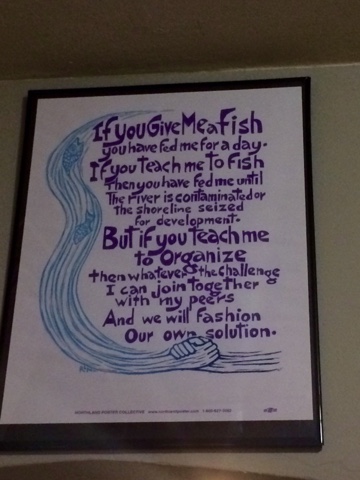 If you Give Me a Fish
you have fed me for a day.
If you teach me to Fish
Then you have fed me until
The river is contaminated or
the shoreline seized
for development.
But if you teach me
to Organize
then whatever the challenge
I can join together
with my peers
And we will Fashion
Our own solution.
NORTHLAND POSTER COLLECTIVE